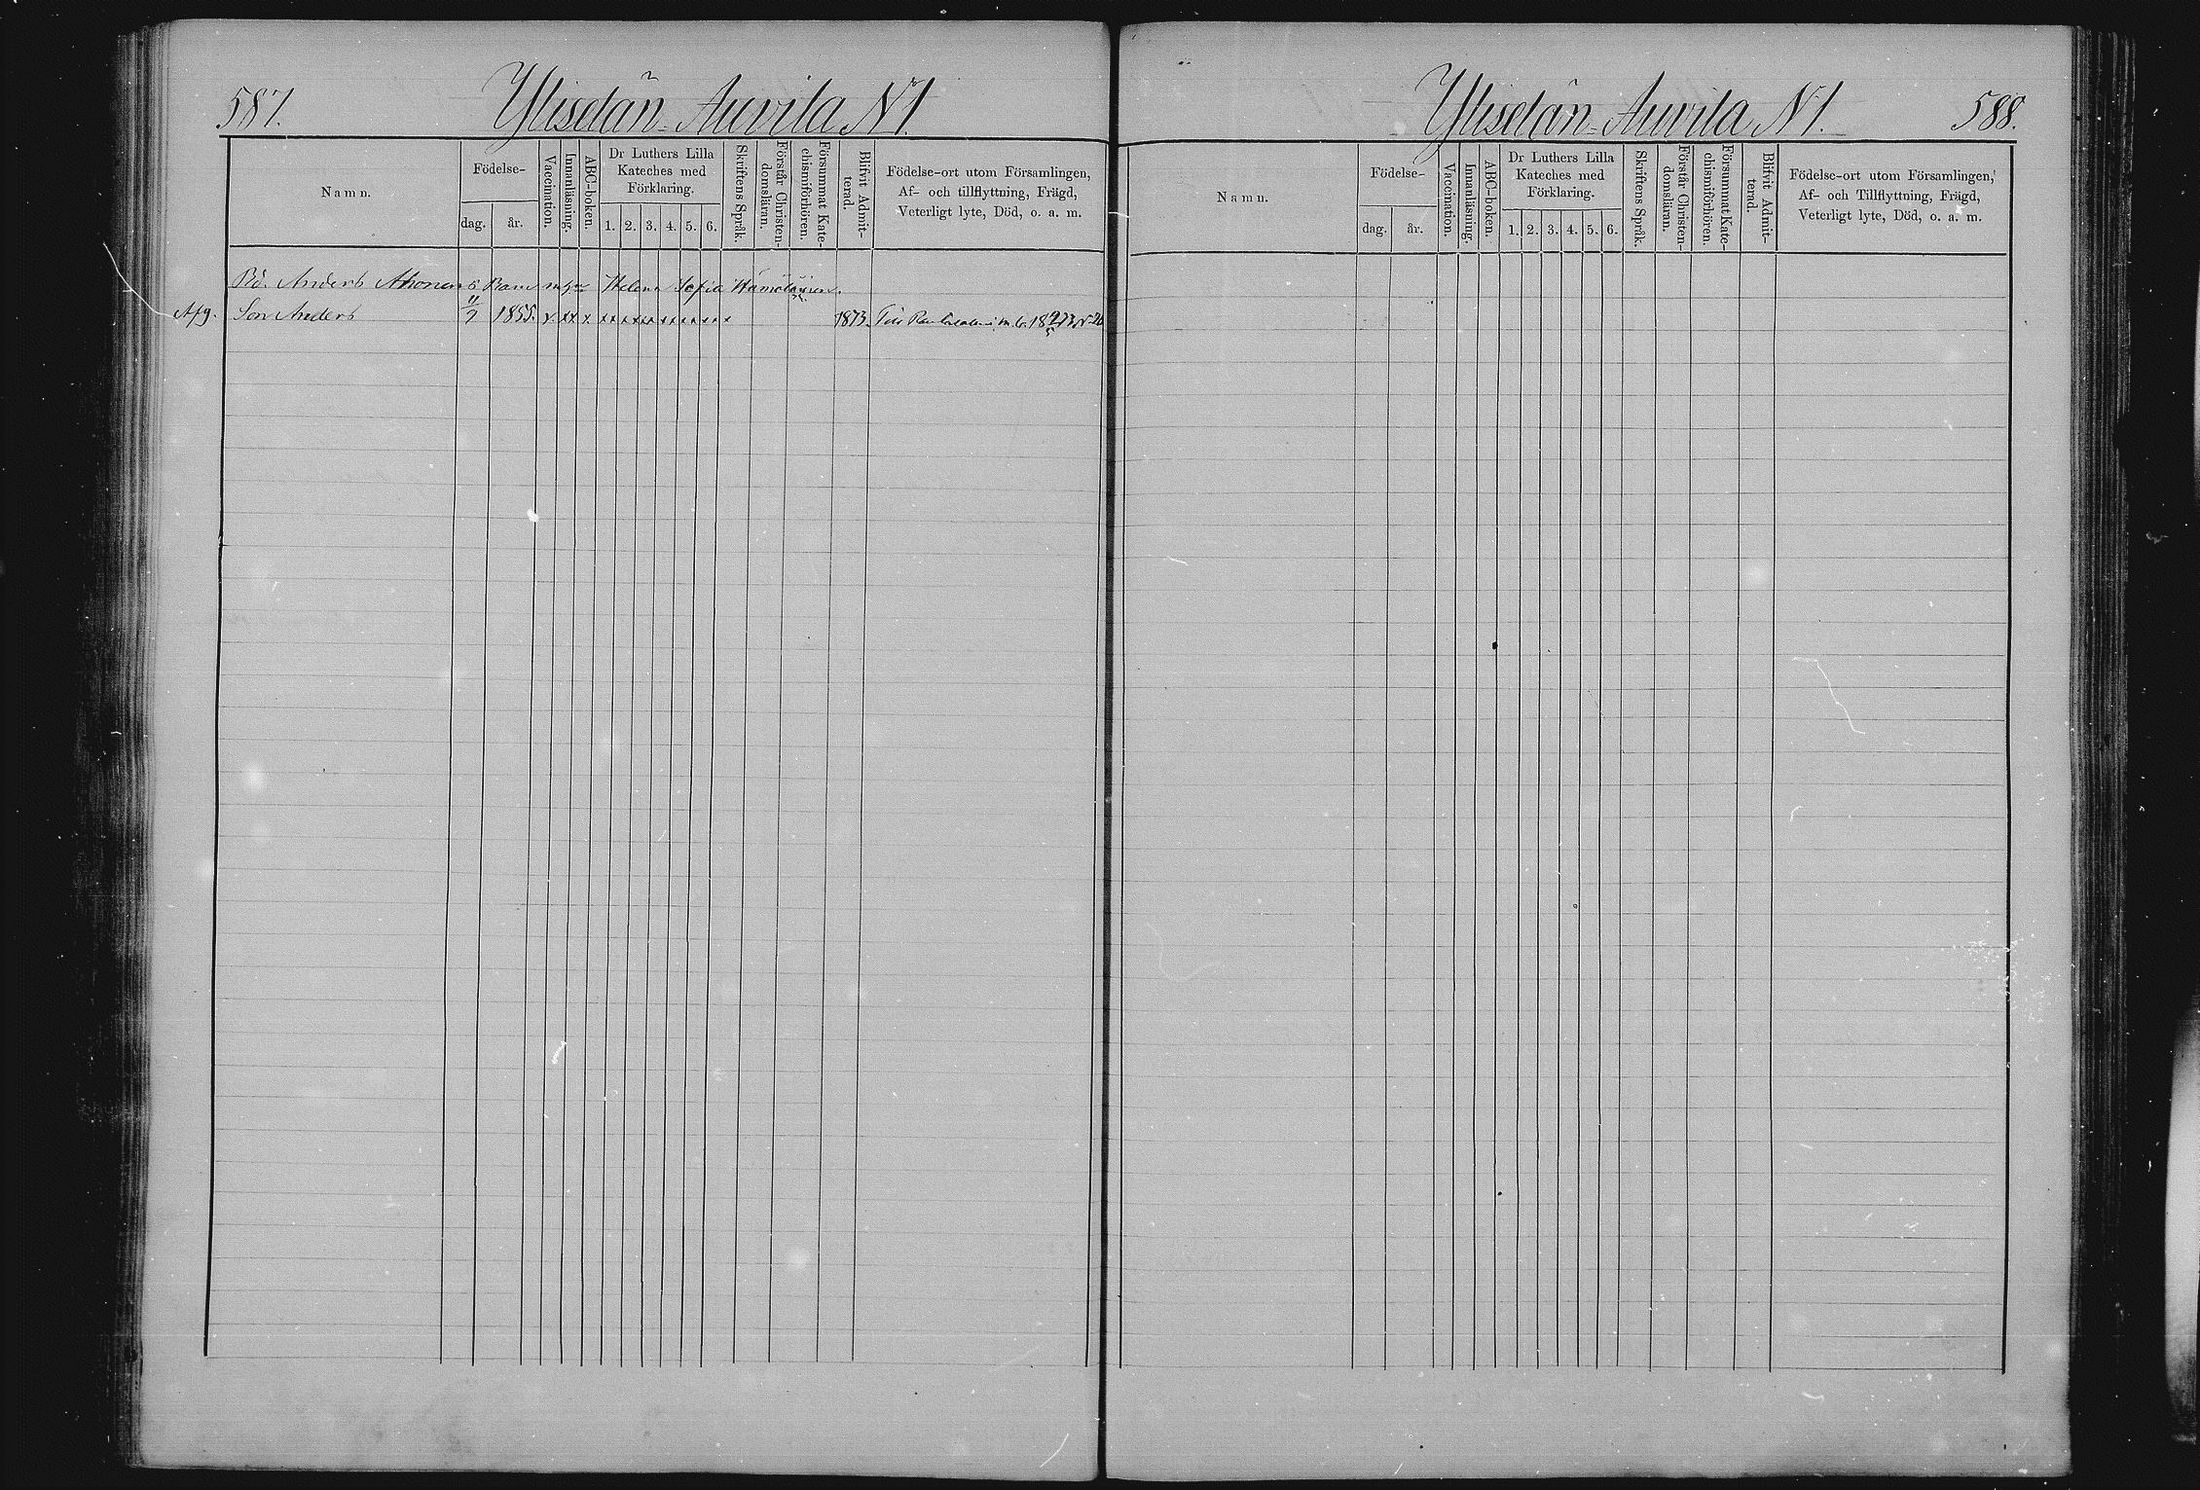 587.
Yliselän Auvila N 1.
Namn.
Födelse-
dag.
år.
Vaccination.
Innanläsning.
ABC-boken.
Dr Luthers Lilla
Kateches med
Förklaring.
1. 2. 3. 4. 5. 6.
Skriftens Språk.
Förstår Christen-
domsläran.
Försummat Kate-
chismiförhören.
Blifvit Admit-
terad.
Födelse-ort utom Församlingen,
Af- och tillflyttning, Frägd,
Veterligt lyte, Död, o. a. m.
Anders Ahonens Barn m. Helena Sofia Hämäläinen.
Afg. Son Anders 11/7 1855. x xx x xx xx xx xx xx xx x 1873. Till
Yliselän Auvila N 1.
588.
Namn.
Födelse-
dag.
år.
Vaccination.
Innanläsning.
ABC-boken.
Dr Luthers Lilla
Kateches med
Förklaring.
1. 2. 3. 4. 5. 6.
Skriftens Språk.
Förstår Christen-
domsläran.
Försummat Kate-
chismiförhören.
Blifvit Admit-
terad.
Födelse-ort utom Församlingen,
Af- och Tillflyttning, Frägd,
Veterligt lyte, Död, o. a. m.